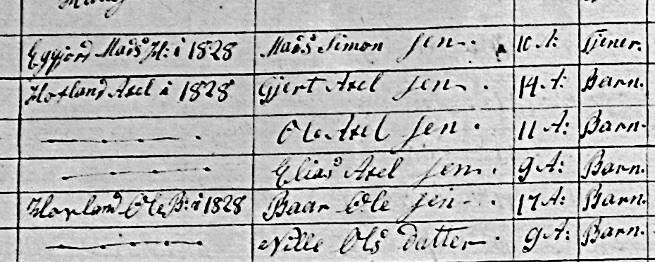 Eggjord Mads H: i 1828 Mads Simon sen. 10 A: tjener.
Hovland Axel i 1828 Gjert Axel sen. 14 A: Barn.
Ole Axel sen. 11 A: Barn.
Elias Axel sen. 9 A: Barn.
Hovland Ole B: i 1828 Baar Ole sen. 17 A: Barn.
Nille Ols datter 9 A: Barn.